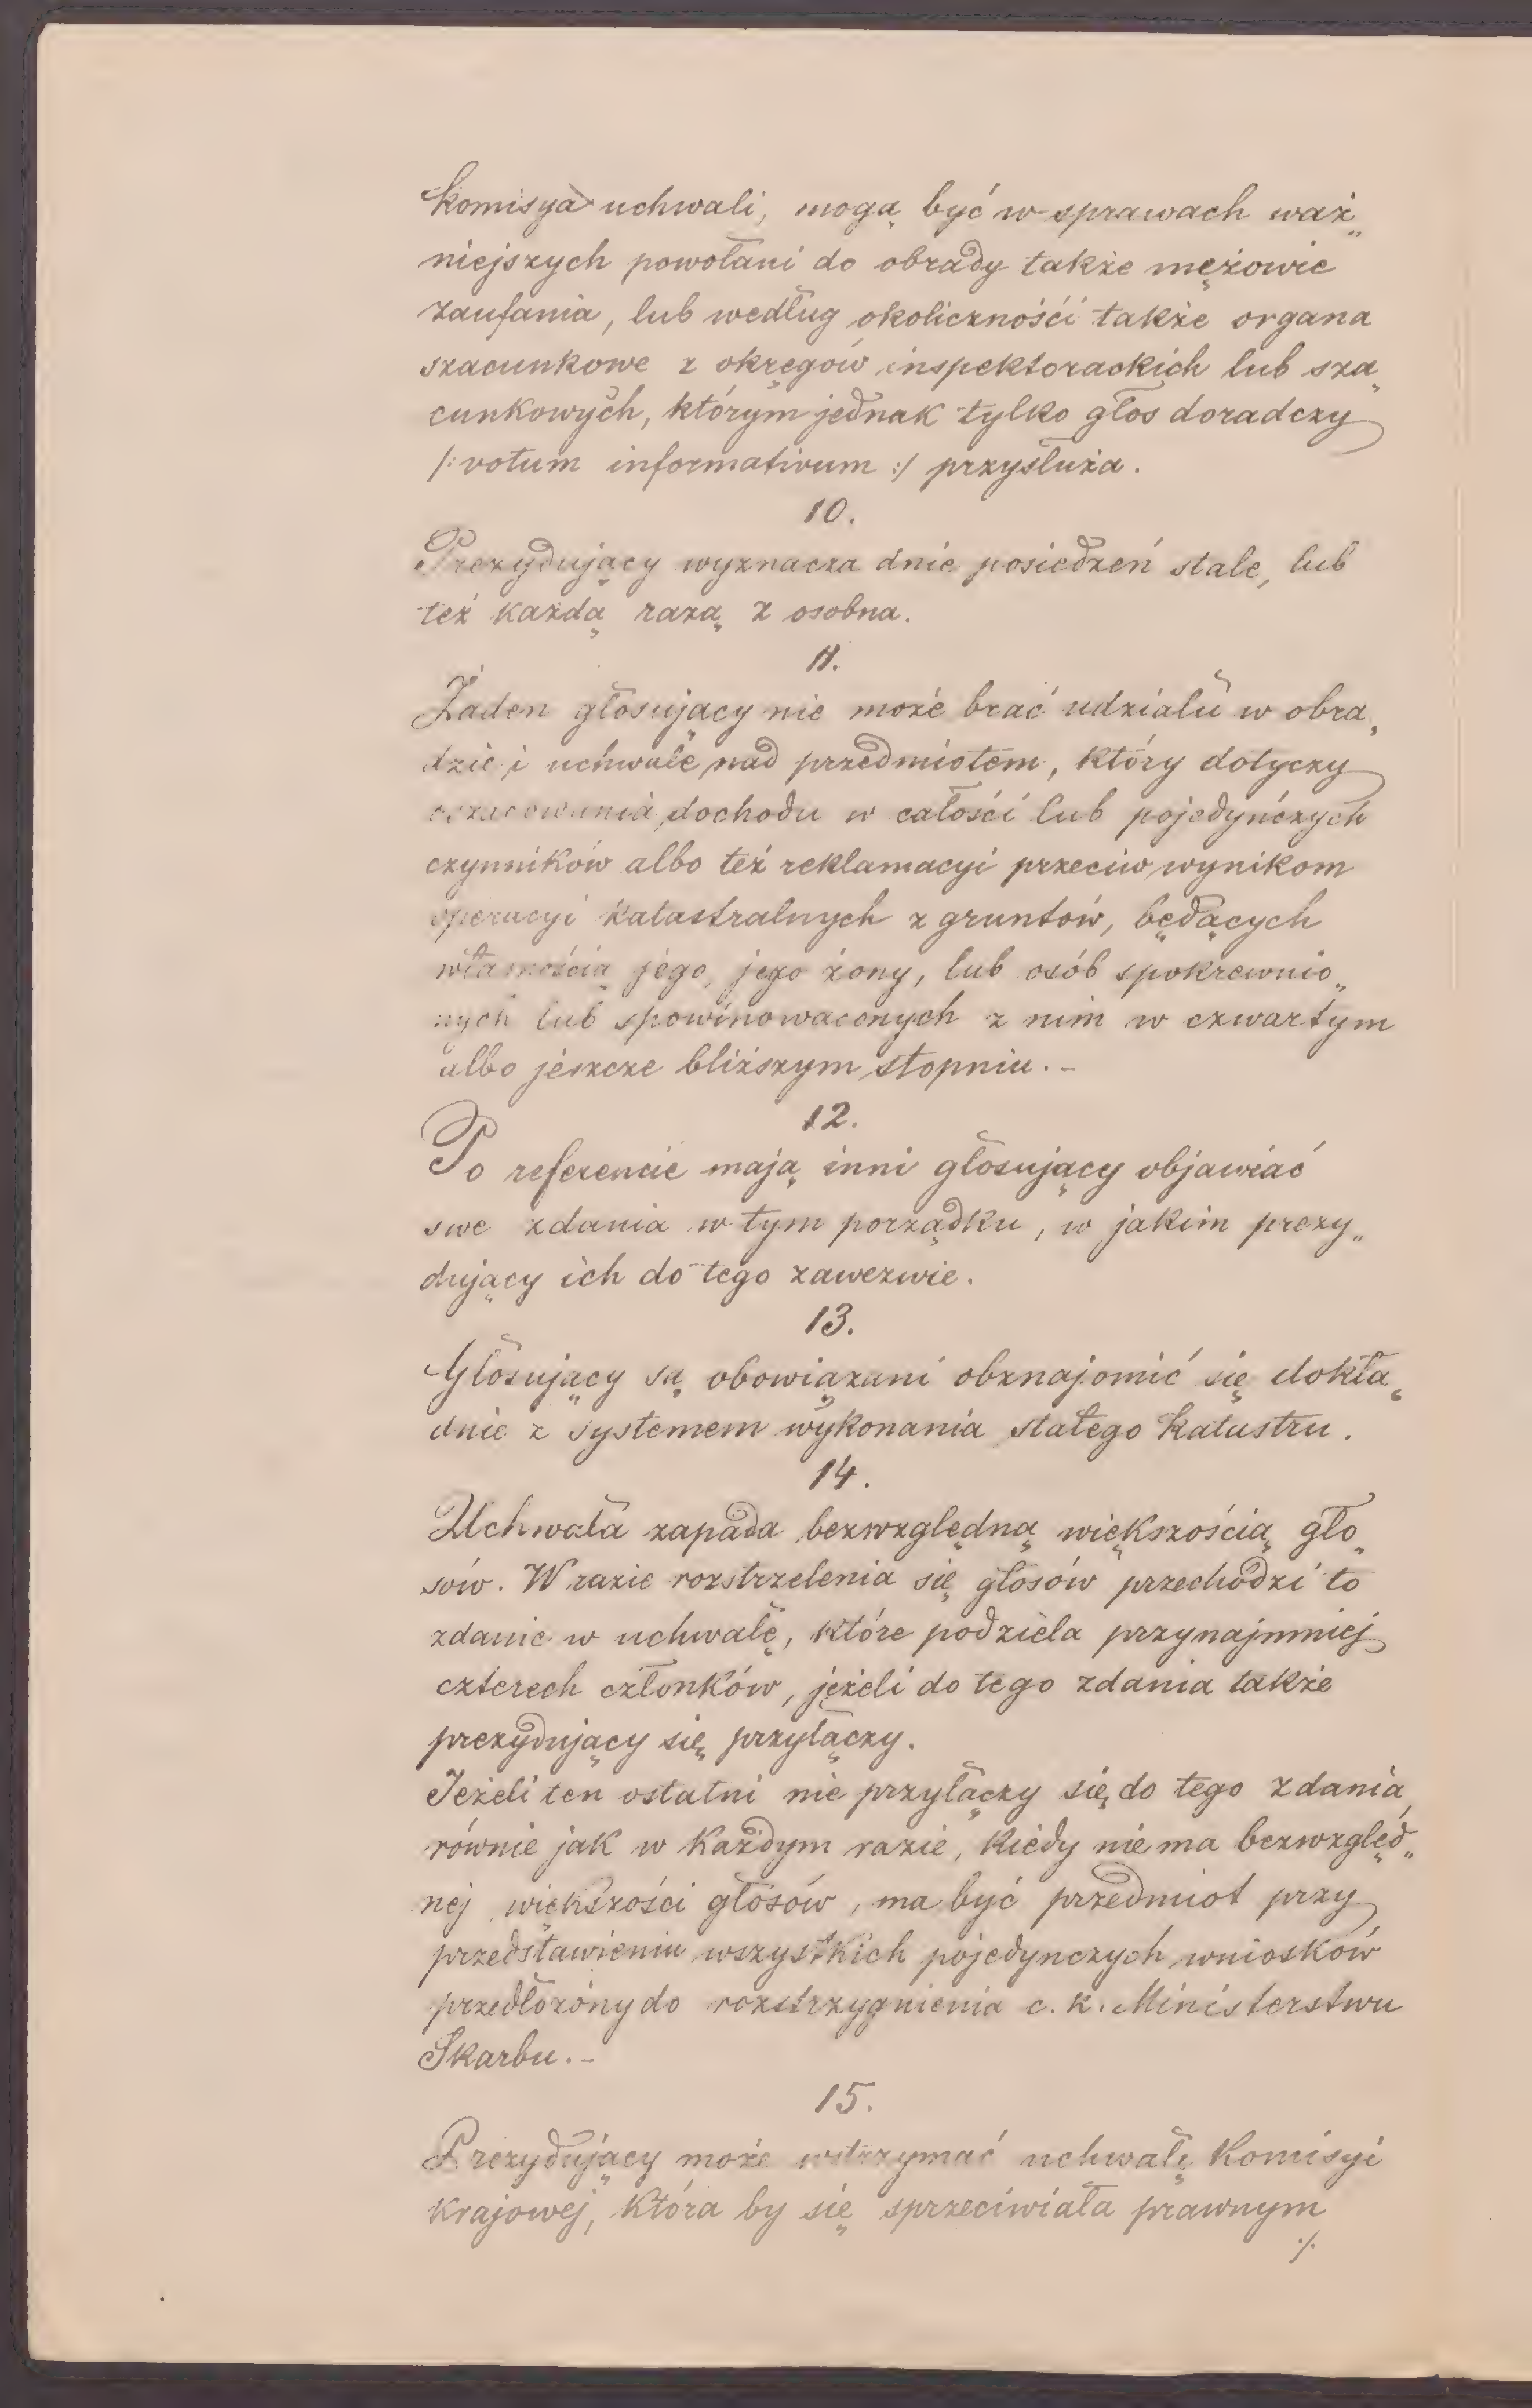 komisya uchwali, mogą być w sprawach waż„
niejszych powołani do obrady także mężowie
zaufania, lub według okoliczności także organa
szacunkowe z okręgów inspektorackich lub sza„
cunkowych, którym jednak tylko głos doradczy
/: votum informativum :/ przysłuża.
10.
Prezydujący wyznacza dnie posiedzeń stale, lub
też każdą razą z osobna.
11.
Żaden głosujący nie może brać udziału w obra„
dzie i uchwale nad przedmiotem, który dotyczy
oszacowania dochodu w całości lub pojedyńczych
czynników albo też reklamacyi przeciw wynikom
operacyi katastralnych z gruntów, będących
własnością jego, jego żony, lub osób spokrewnio„
nych lub spowinowaconych z nim w czwartym
albo jeszcze bliższym stopniu. –
12.
Po referencie mają inni głosujący objawiać
swe zdania w tym porządku, w jakim prezy„
dujący ich do tego zawezwie.
13.
Głosujący są obowiązani obznajomić się dokła„
dnie z systemem wykonania stałego katastru.
14.
Uchwała zapada bezwzględną większością gło„
sów. W razie rozstrzelenia się głosów przechodzi to
zdanie w uchwałę, które podziela przynajmniej
czterech członków, jeżeli do tego zdania także
prezydujący się przyłączy.
Jeżeli ten ostatni nie przyłączy się do tego zdania,
równie jak w każdym razie, kiedy nie ma bezwzględ„
nej większości głosów, ma być przedmiot przy
przedstawieniu wszystkich pojedynczych wniosków
przedłożony do rozstrzygnienia c. k. Ministerstwu
Skarbu. –
15.
Prezydujący może wstrzymać uchwałę Komisyi
krajowej, która by się sprzeciwiała prawnym
./.